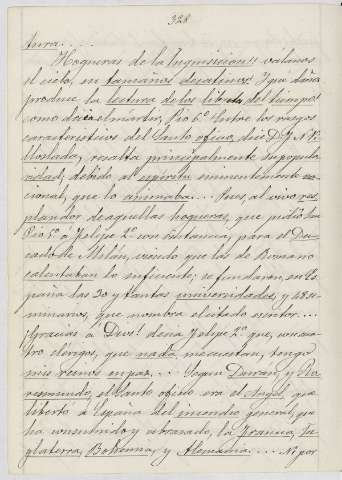 328
tura....
Hogueras de la Inquisicion!! válanos
el cielo, en tamaños desatinos! Y que daños
produce la lectura de los libros del tiempo!
como decia el mártir, Pio 6º Entre los rasgos
caracteristicos del Santo oficio, dice D. J. N. Vi
lloslada, resalta principalmente su popula
ridad; debido al espiritu eminentemente na
cional, que lo animaba... Pues, al vivo res
plandor de aquellas hogueras, que pidió San
Pio 5º a Felipe 2º con instancia, para el Du
cado de Milán, viendo que las de Romano
calentaban lo suficiente; se fundaron, en Es
paña las 30 y tantas universidades, y 48 se
minarios, que nombra el citado escritor...
¡Gracias a Dios! decia Felipe 2º que, con cua
tro clerigos, que nada necesitan, tengo
mis reinos en paz... Segun Durán, y
el Santo oficio era el Angel que
libertó a España del incendio general, que
ha consumido y abrasado, la Francia, In
glaterra, Bohemia, y Alemania.... Ni por